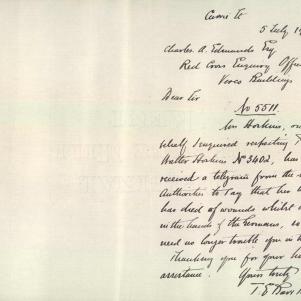 Currie St
5 July 19
Charles A. Edmunds Esq
Red Cross Enquiry Offi
Verco Buildings
Dear Sir
No 5511.
Mrs Hoskins, on
behalf I enquired respecting
Walter Hoskins No 3602, has
received a telegram from the
Authorities to say that he
has died of wounds whilst
in the hands of the Germans, so
need no longer trouble you in
Thanking you for your
assistance. Yours truly
T. E. Barr